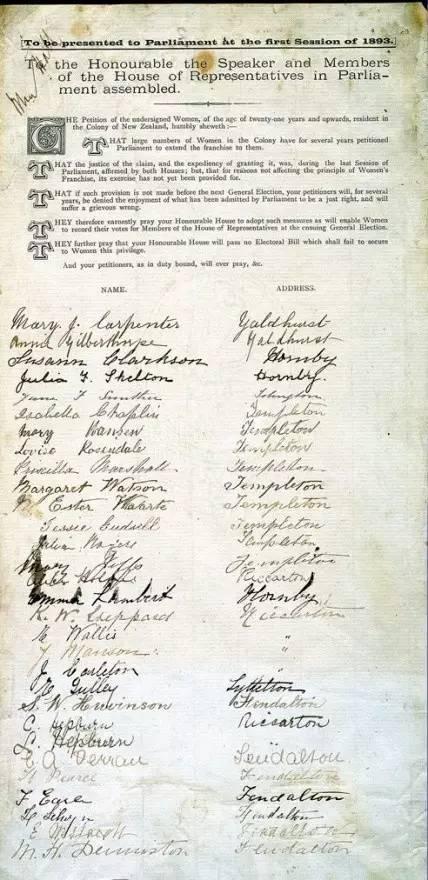 To be presented to Parliament at the first Session of 1893.
To the Honourable the Speaker and Members
of the House of Representatives in Parlia-
ment assembled.
THE Petition of the undersigned Women, of the age of twenty-one years and upwards, resident in
the Colony of New Zealand, humbly sheweth:—
THAT large numbers of Women in the Colony have for several years petitioned
Parliament to extend the franchise to them.
THAT the justice of the claim, and the expediency of granting it, was, during the last Session of
Parliament, affirmed by both Houses; but, that for reasons not affecting the principle of Women's
Franchise, its exercise has not yet been provided for.
THAT if such provision is not made before the next General Election, your petitioners will, for several
years, be denied the enjoyment of what has been admitted by Parliament to be a just right, and will
suffer a grievous wrong.
THEY therefore earnestly pray your Honourable House to adopt such measures as will enable Women
to record their votes for Members of the House of Representatives at the ensuing General Election.
THEY further pray that your Honourable House will pass no Electoral Bill which shall fail to secure
to Women this privilege.
And your petitioners, as in duty bound, will ever pray, &c.
NAME. ADDRESS.
Mary J. Carpenter Yaldhurst
Annie Gilberthorpe Yaldhurst
Susann Clarkson Hornby
Julia F. Shelton Hornby.
Jane
Isabella Chaplin Templeton
Mary Hansen Templeton
Louise Rosendale Templeton
Priscilla Marshall Templeton
Margaret Watson Templeton
Ester Templeton
Templeton
Templeton
Mary Templeton
Riccarton
Emma Lambert Hornby
K. W. Sheppard Riccarton
Wallis "
Manson "
J. Carleton "
Gulley Lyttelton
S. W. Fendalton
C. Hepburn Riccarton
C. Hepburn
C A Fendalton
Pearce Fendalton
F Fendalton
Fendalton
E Fendalton
M. H. Denniston Fendalton